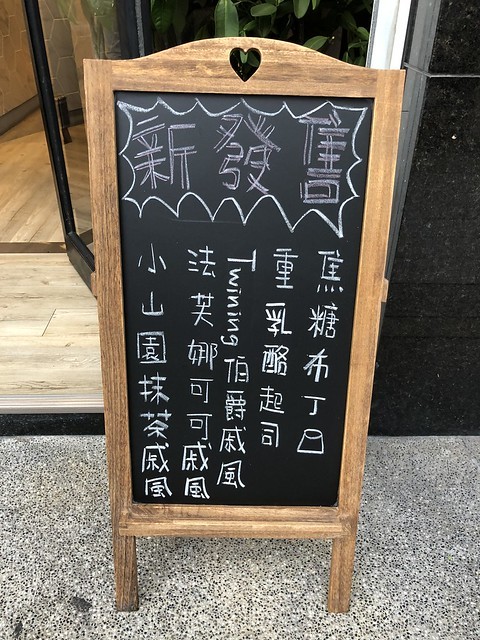 新發售
焦糖布丁
重乳酪起司
Twining伯爵戚風
法芙娜可可戚風
小山園抹茶戚風